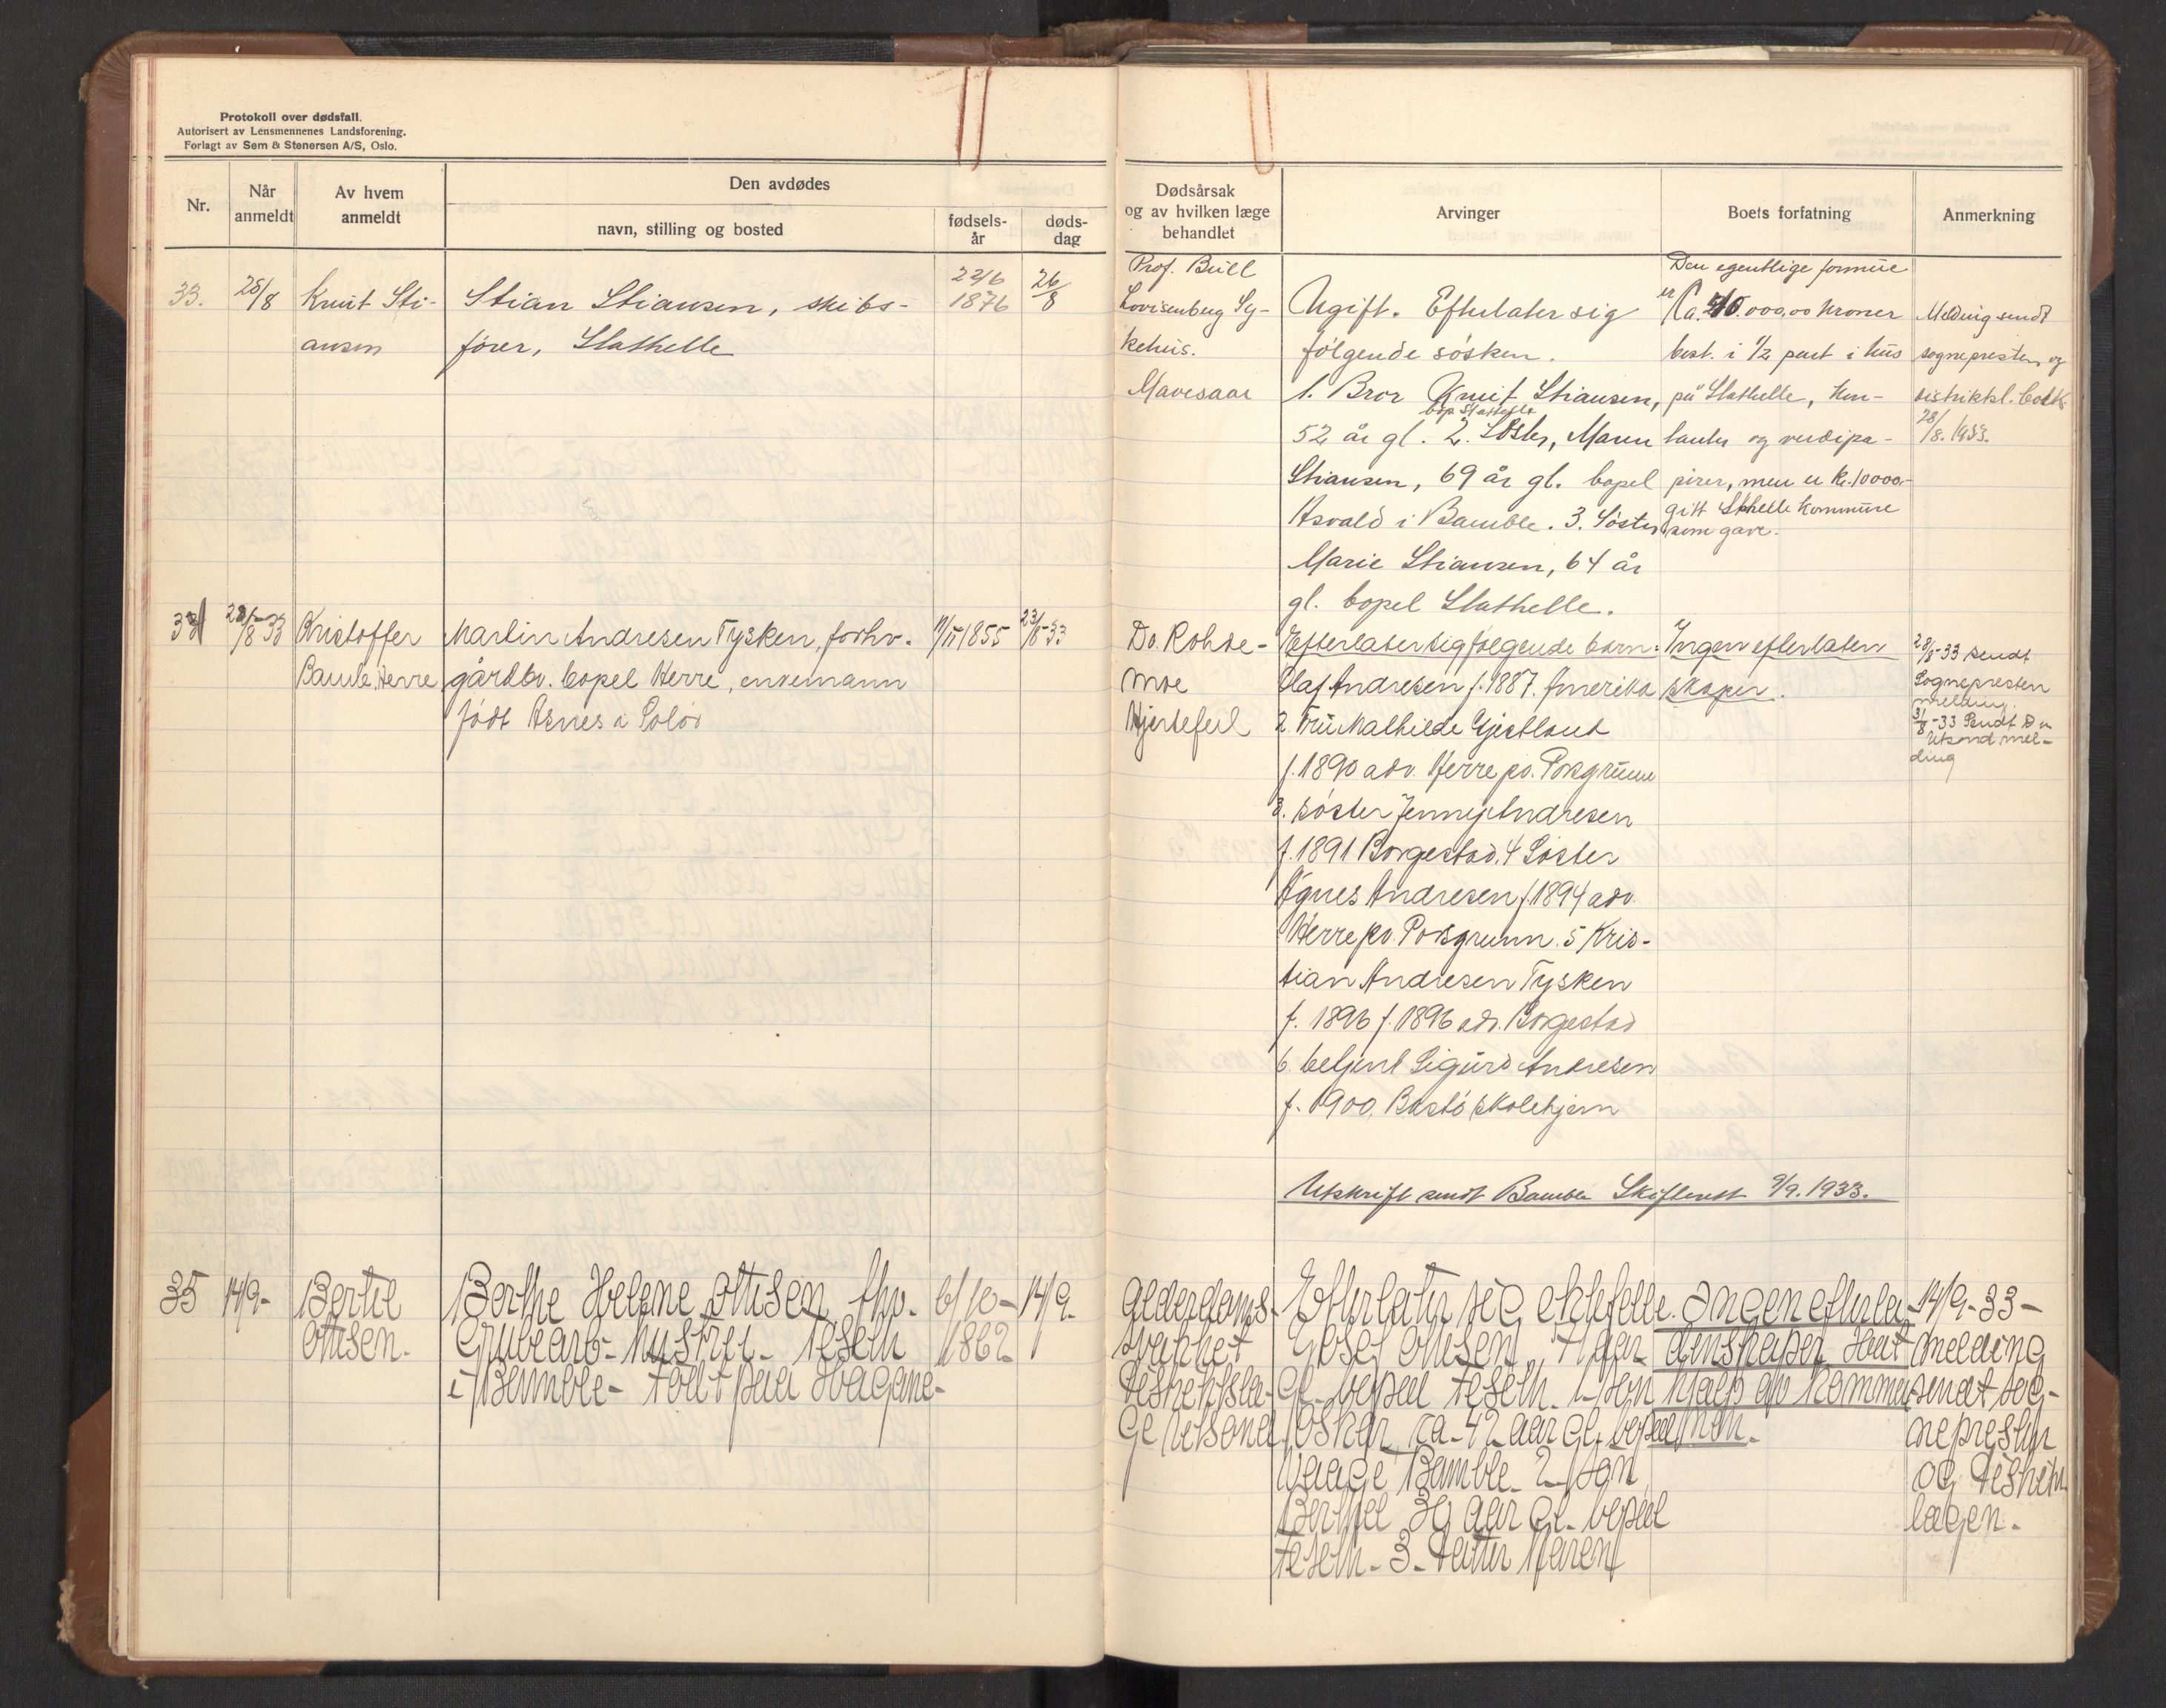 Protokoll over dødsfall.
Autorisert av Lensmennenes Landsforening.
Forlagt av Sem & Stenersen A/S, Oslo.
Nr.
Når anmeldt
Av hvem anmeldt
Den avdødes
navn, stilling og bosted
fødsels-år
døds-dag
Dødsårsak og av hvilken læge behandlet
Arvinger
Boets forfatning
Anmerkning
33.
28/8
Knut Sti-
ansen
Stian Stiansen, skibs-
fører, Stathelle
22/6
1876
26/8
Prof. Bull
Lovisenberg Sy-
kehus.
Mavesaar
Ugift. Efterlater sig
følgende søsken.
1. Bror Knut Stiansen,
bop Stathelle
52 år gl. 2. Søster, Maren
Stiansen, 69 år gl. bopel
Åsvald i Bamble. 3. Søster
Marie Stiansen, 64 år
gl. bopel Stathelle.
Den egentlige formue
er Ca. 40.000,00 kroner
best. i 1/2 part i hus
på Stathelle, kon-
tanter og verdipa-
pirer, men er kr. 10000.-
gitt Stathelle kommune
som gave.
Melding sendt
sognepresten og
distriktsl.
28/8. 1933.
34
28/8-33
Kristoffer
Bamle, Herre
Martin Andresen Tysken, forhv.
gårdbr. bopel Herre, enkemann
født Åsnes i Solør
1855
23/8-33
Dr. Rohde-
Moe
Hjertefeil
Efterlater sig følgende barn:
Olaf Andresen f. 1887. Amerika
2. Fru Mathilde Gjestland
f. 1890 adr. Herre pr. Porsgrunn
3. søster Jenny Andresen
f. 1891 Borgestad. 4 Søster
Agnes Andresen f. 1894 adr.
Herre pr. Porsgrunn. 5 Kris-
tian Andresen Tysken
f. 1896 f. 1896 adr. Borgestad
6. betjent Sigurd Andresen
f. 1900. Bastø skolehjem
Ingen efterlaten
skaper.
28/8-33 sendt
Sognepresten
melding.
31/8-33 Sendt Dr
mel-
ding
Utskrift sendt Bamble Skifterett 9/9. 1933.
35
14/9-
Bertil
Ottisen.
Berthe Helene Ottisen fhv.
Grubearb- hustru- Feseth
i Bamble- født paa Hvagane-
6/10-
1862
14/9.
Alderdoms-
svakhet
Distriktslæ-
ge
Efterlater sig ektefelle
Josef Ottisen, 71 aar
gl. bopæl Feseth. 1- søn
Oskar ca- 42 aar gl. bopæl
Vaage Bamble- 2- søn
Berthel 39 aar gl- bopæl
Feseth- 3- datter Maren
Ingen efterla-
denskaper Hat
hjælp av Kommu-
nen.
14/9-33-
melding
sendt sog-
nepresten
og distrikts
lægen.